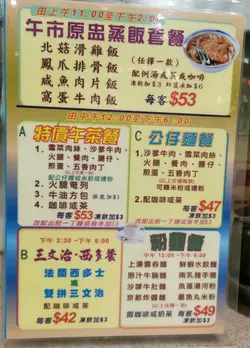 由上午11:00至下午2:0
午市原盅蒸飯套餐
北菇滑雞飯
鳳爪排骨飯
咸魚肉片飯
窩蛋牛肉飯
(任擇一款)
配例湯或茶或咖啡
凍飲加$3
每客$53
由中午12:00至下午6:00
A 特價午茶餐
1. 雪菜肉絲、沙爹牛肉、
火腿、餐肉、腸仔、
煎蛋、五香肉丁
配公仔麵或米粉或通粉
2. 火腿奄列
3. 牛油方包
4. 咖喱
配咖啡或茶
每客$53 凍飲加$3
C 公仔麵餐
1. 雪菜肉絲、
沙爹牛肉、火腿、
餐肉、腸仔、煎蛋、
五香肉丁
可轉米粉或通粉
配咖啡或茶
每客$47
凍飲加$3
B 下午 2:30~下午 6:00
三文治·西多餐
法蘭西多士
或
雙拼三文治
配咖啡或茶
每客$42 凍飲加$3
粉麵餐
中午 12:00~下午 6:00
上湯雲吞麵
原汁牛腩麵
沙爹牛肉麵
京都炸醬麵
鮮蝦水餃麵
南乳豬手麵
魚蛋湯河粉
墨魚丸米粉
跟咖啡或奶茶
每客$49
凍飲加$3